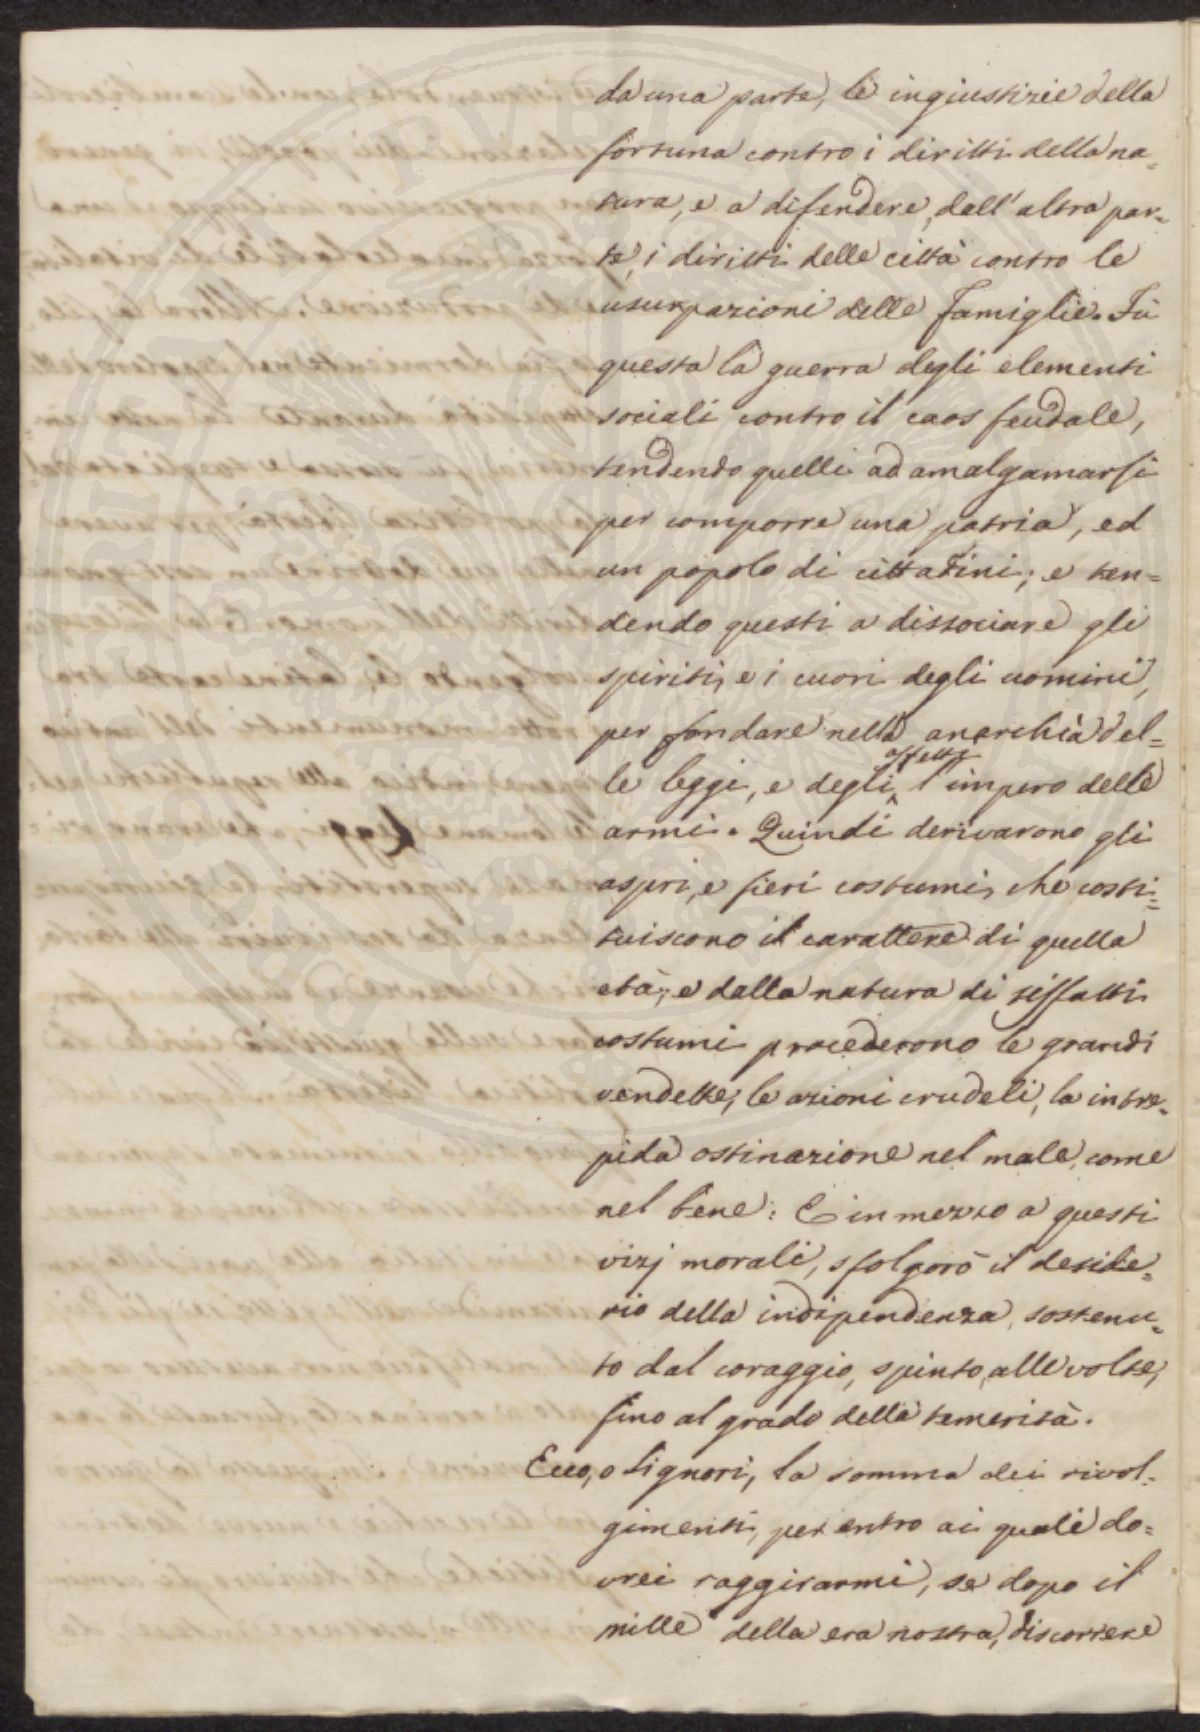 da una parte, le ingiustizie della
fortuna contro i diritti della na=
tura, e a difendere, dall'altra par=
te, i diritti delle città contro le
usurpazioni delle famiglie. Fu
questa la guerra degli elementi
sociali contro il caos feudale,
tendendo quelli ad amalgamarsi
per comporre una patria, ed
un popolo di cittadini; e ten=
dendo questi a dissociare gli
spiriti, e i cuori degli uomini,
per fondare nella anarchia del=
le leggi, e degli affetti l'impero delle
armi. Quindi derivarono gli
aspri, e fieri costumi, che costi=
tuiscono il carattere di quella
età; e dalla natura di siffatti
costumi procederono le grandi
vendette, le azioni crudeli, la intre=
pida ostinazione nel male, come
nel bene: E in mezzo a questi
vizj morali, sfolgorò il deside=
rio della indipendenza, sostenu=
to dal coraggio, spinto, alle volte,
fino al grado della temerità.
Ecco, o Signori, la somma dei rivol=
gimenti, per entro ai quali do=
vrei raggirarmi, se dopo il
mille della era nostra, discorrere